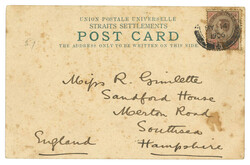 UNION POSTALE UNIVERSELLE
STRAITS SETTLEMENTS
POST CARD
THE ADDRESS ONLY TO BE WRITTEN ON THIS SIDE.
Miss R. Gimlette
Sandford House
Merton Road
Southsea
England Hampshire